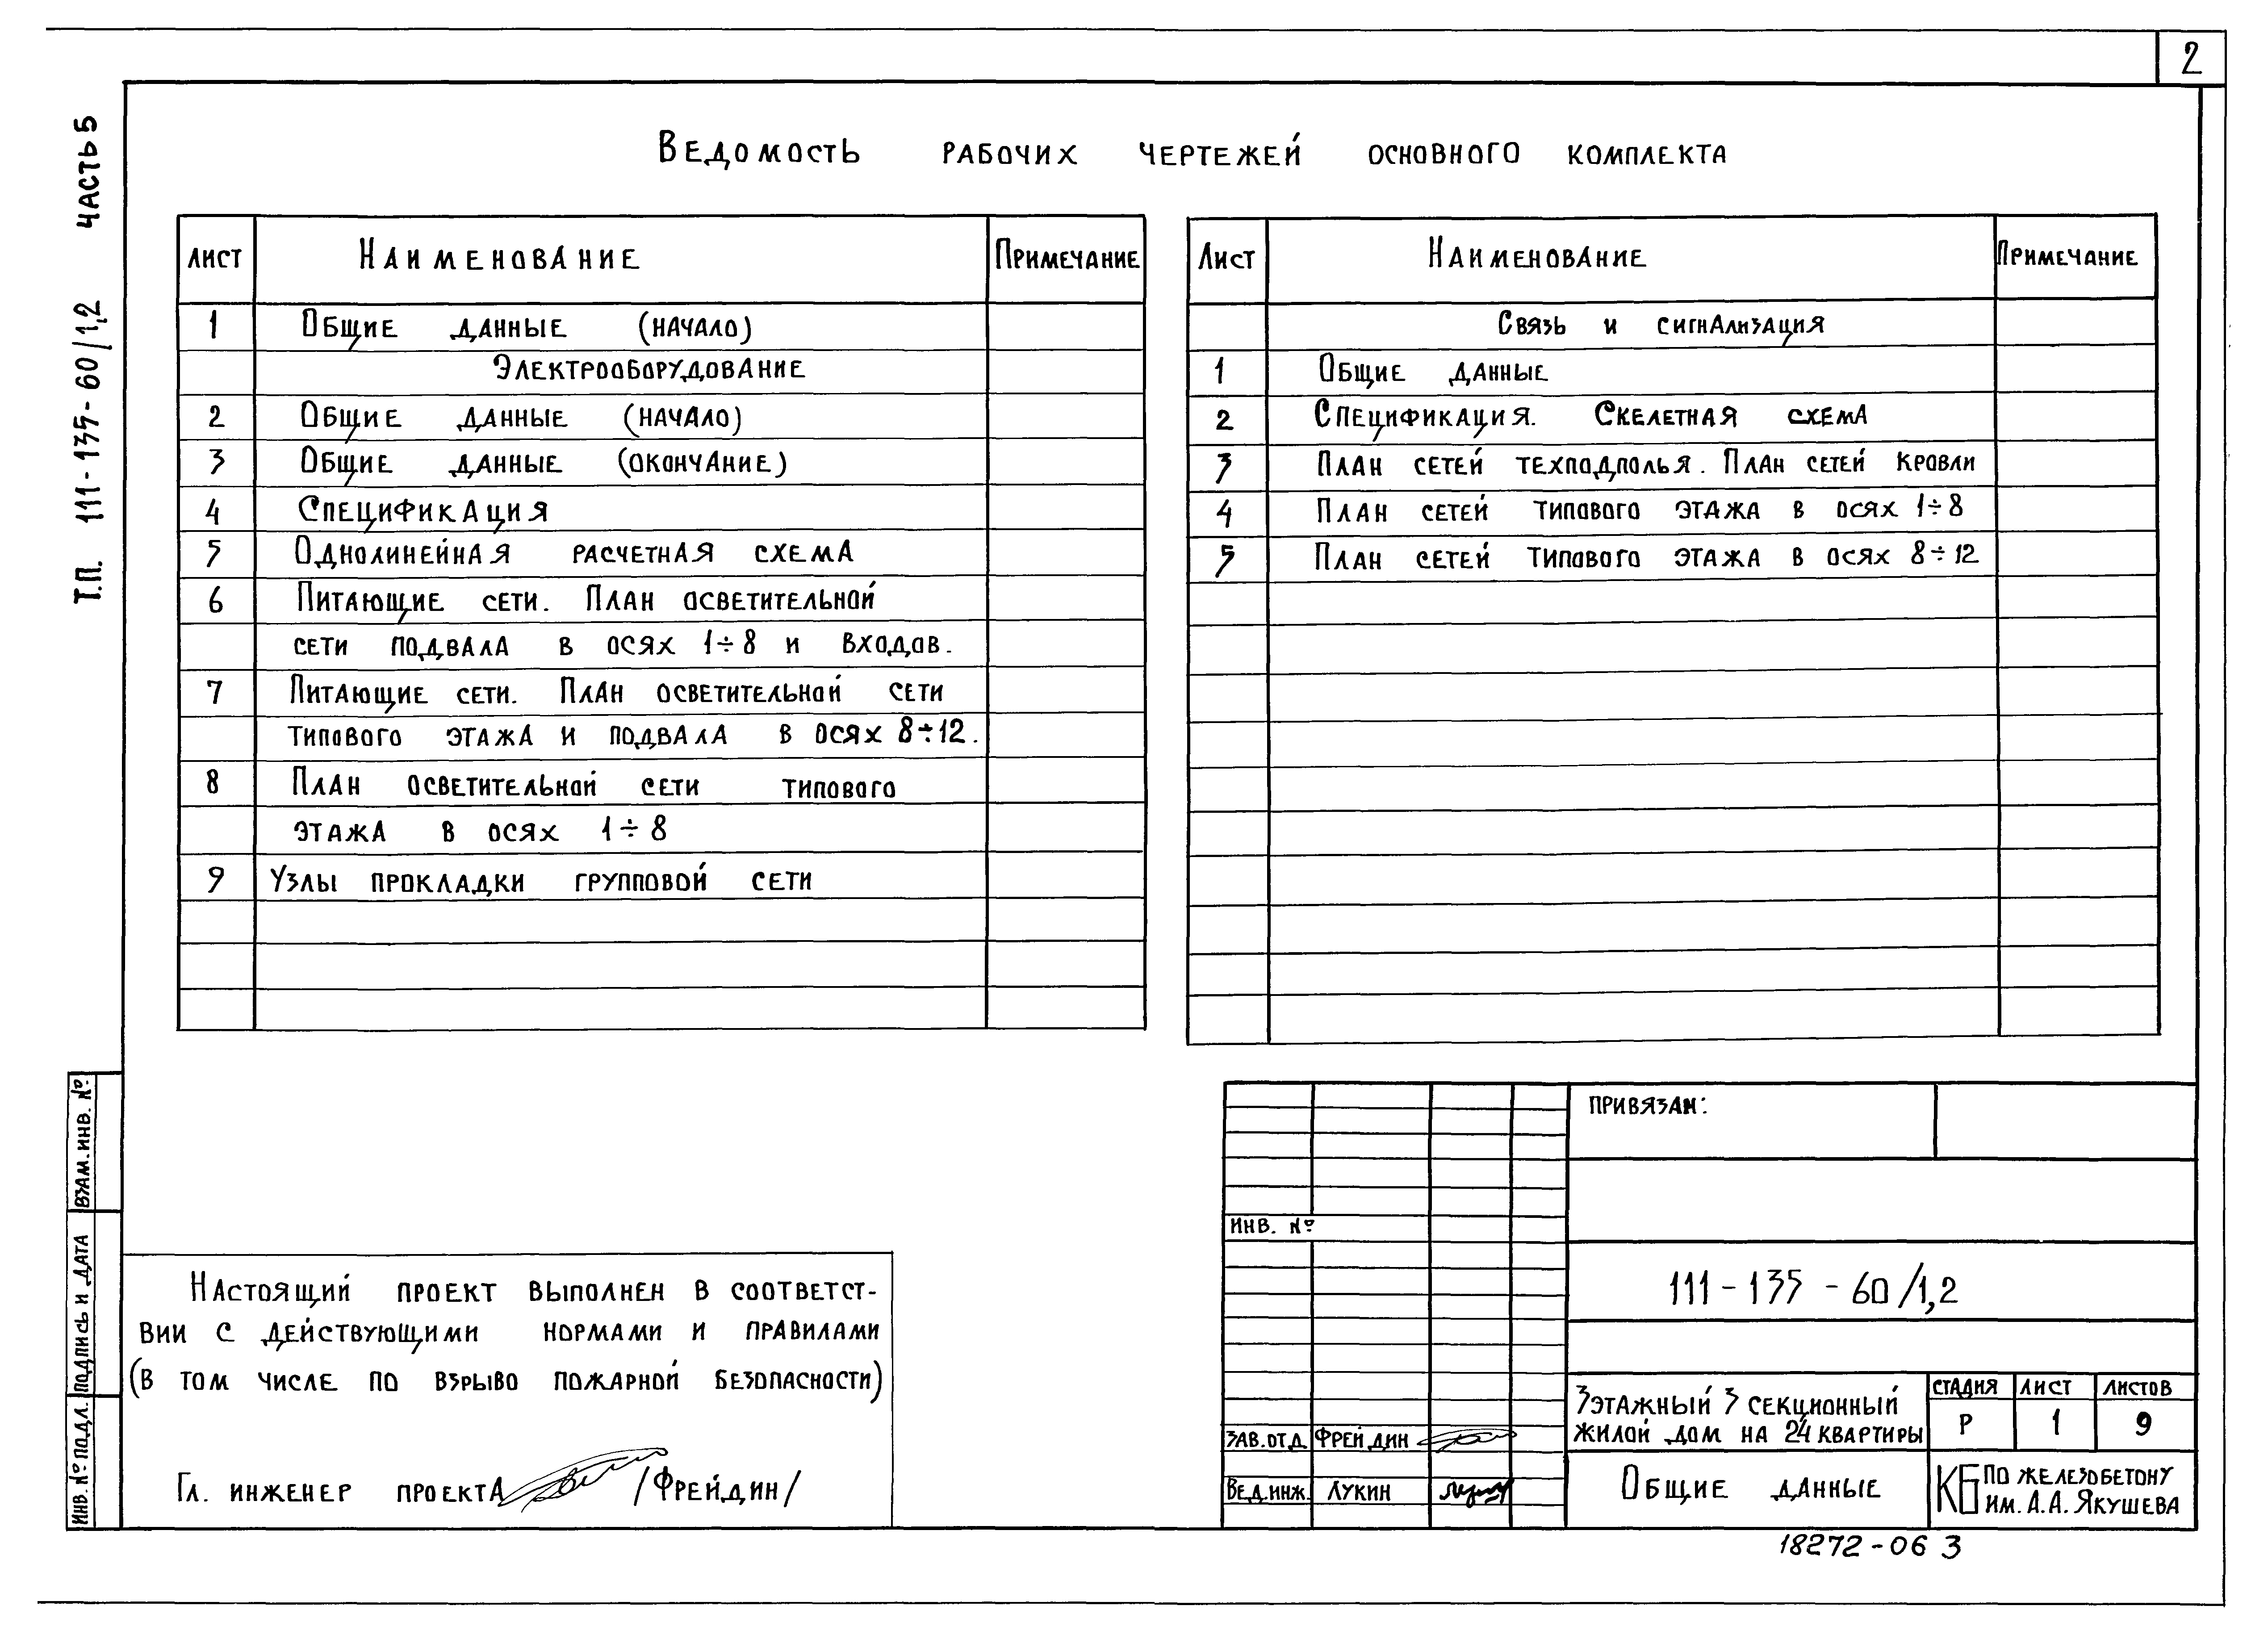 2
Т.П. 111-135-60/1,2 ЧАСТЬ 5
ВЕДОМОСТЬ РАБОЧИХ ЧЕРТЕЖЕЙ ОСНОВНОГО КОМПЛЕКТА
ЛИСТ НАИМЕНОВАНИЕ ПРИМЕЧАНИЕ
1 ОБЩИЕ ДАННЫЕ (НАЧАЛО)
ЭЛЕКТРООБОРУДОВАНИЕ
2 ОБЩИЕ ДАННЫЕ (НАЧАЛО)
3 ОБЩИЕ ДАННЫЕ (ОКОНЧАНИЕ)
4 СПЕЦИФИКАЦИЯ
5 ОДНОЛИНЕЙНАЯ РАСЧЕТНАЯ СХЕМА
6 ПИТАЮЩИЕ СЕТИ. ПЛАН ОСВЕТИТЕЛЬНОЙ
СЕТИ ПОДВАЛА В ОСЯХ 1÷8 И ВХОДОВ.
7 ПИТАЮЩИЕ СЕТИ. ПЛАН ОСВЕТИТЕЛЬНОЙ СЕТИ
ТИПОВОГО ЭТАЖА И ПОДВАЛА В ОСЯХ 8÷12.
8 ПЛАН ОСВЕТИТЕЛЬНОЙ СЕТИ ТИПОВОГО
ЭТАЖА В ОСЯХ 1÷8
9 УЗЛЫ ПРОКЛАДКИ ГРУППОВОЙ СЕТИ
ЛИСТ НАИМЕНОВАНИЕ ПРИМЕЧАНИЕ
СВЯЗЬ И СИГНАЛИЗАЦИЯ
1 ОБЩИЕ ДАННЫЕ
2 СПЕЦИФИКАЦИЯ. СКЕЛЕТНАЯ СХЕМА
3 ПЛАН СЕТЕЙ ТЕХПОДПОЛЬЯ. ПЛАН СЕТЕЙ КРОВЛИ
4 ПЛАН СЕТЕЙ ТИПОВОГО ЭТАЖА В ОСЯХ 1÷8
5 ПЛАН СЕТЕЙ ТИПОВОГО ЭТАЖА В ОСЯХ 8÷12
ВЗАМ. ИНВ. №
ПОДПИСЬ И ДАТА
ИНВ. № ПОДЛ.
НАСТОЯЩИЙ ПРОЕКТ ВЫПОЛНЕН В СООТВЕТСТ-
ВИИ С ДЕЙСТВУЮЩИМИ НОРМАМИ И ПРАВИЛАМИ
(В ТОМ ЧИСЛЕ ПО ВЗРЫВО ПОЖАРНОЙ БЕЗОПАСНОСТИ)
ГЛ. ИНЖЕНЕР ПРОЕКТА /ФРЕЙДИН/
ПРИВЯЗАН:
ИНВ. №
111-135-60/1,2
ЗАВ. ОТД. ФРЕЙДИН
ВЕД. ИНЖ. ЛУКИН
3 ЭТАЖНЫЙ 3 СЕКЦИОННЫЙ
ЖИЛОЙ ДОМ НА 24 КВАРТИРЫ
СТАДИЯ ЛИСТ ЛИСТОВ
Р 1 9
ОБЩИЕ ДАННЫЕ
КБ ПО ЖЕЛЕЗОБЕТОНУ
ИМ. А.А. ЯКУШЕВА
18272-06 3